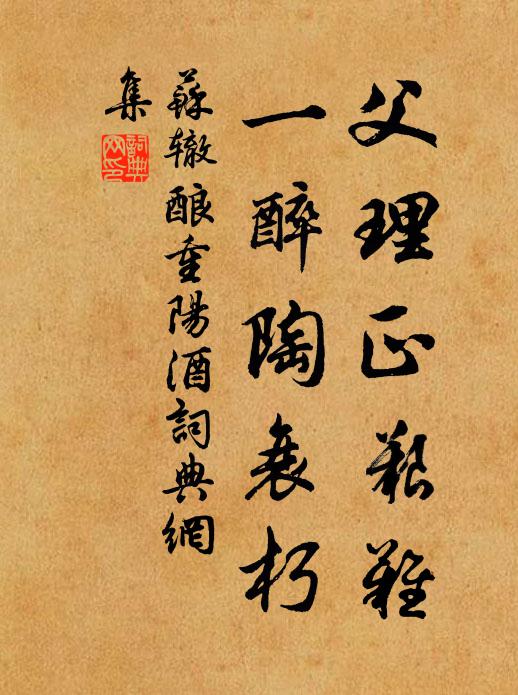 父理正艱難
一醉陶衰朽
蘇轍酿重陽酒詞典網
集
詞典网印